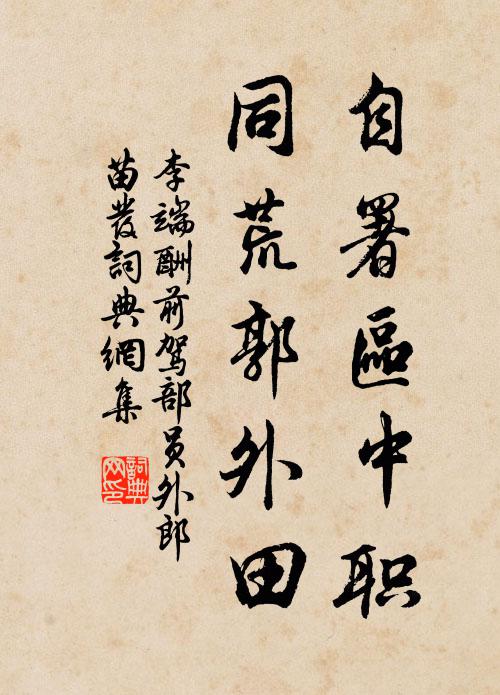 自署區中职
同荒郭外田
李端酬前駕部员外郎
苗發詞典網集
詞典网印